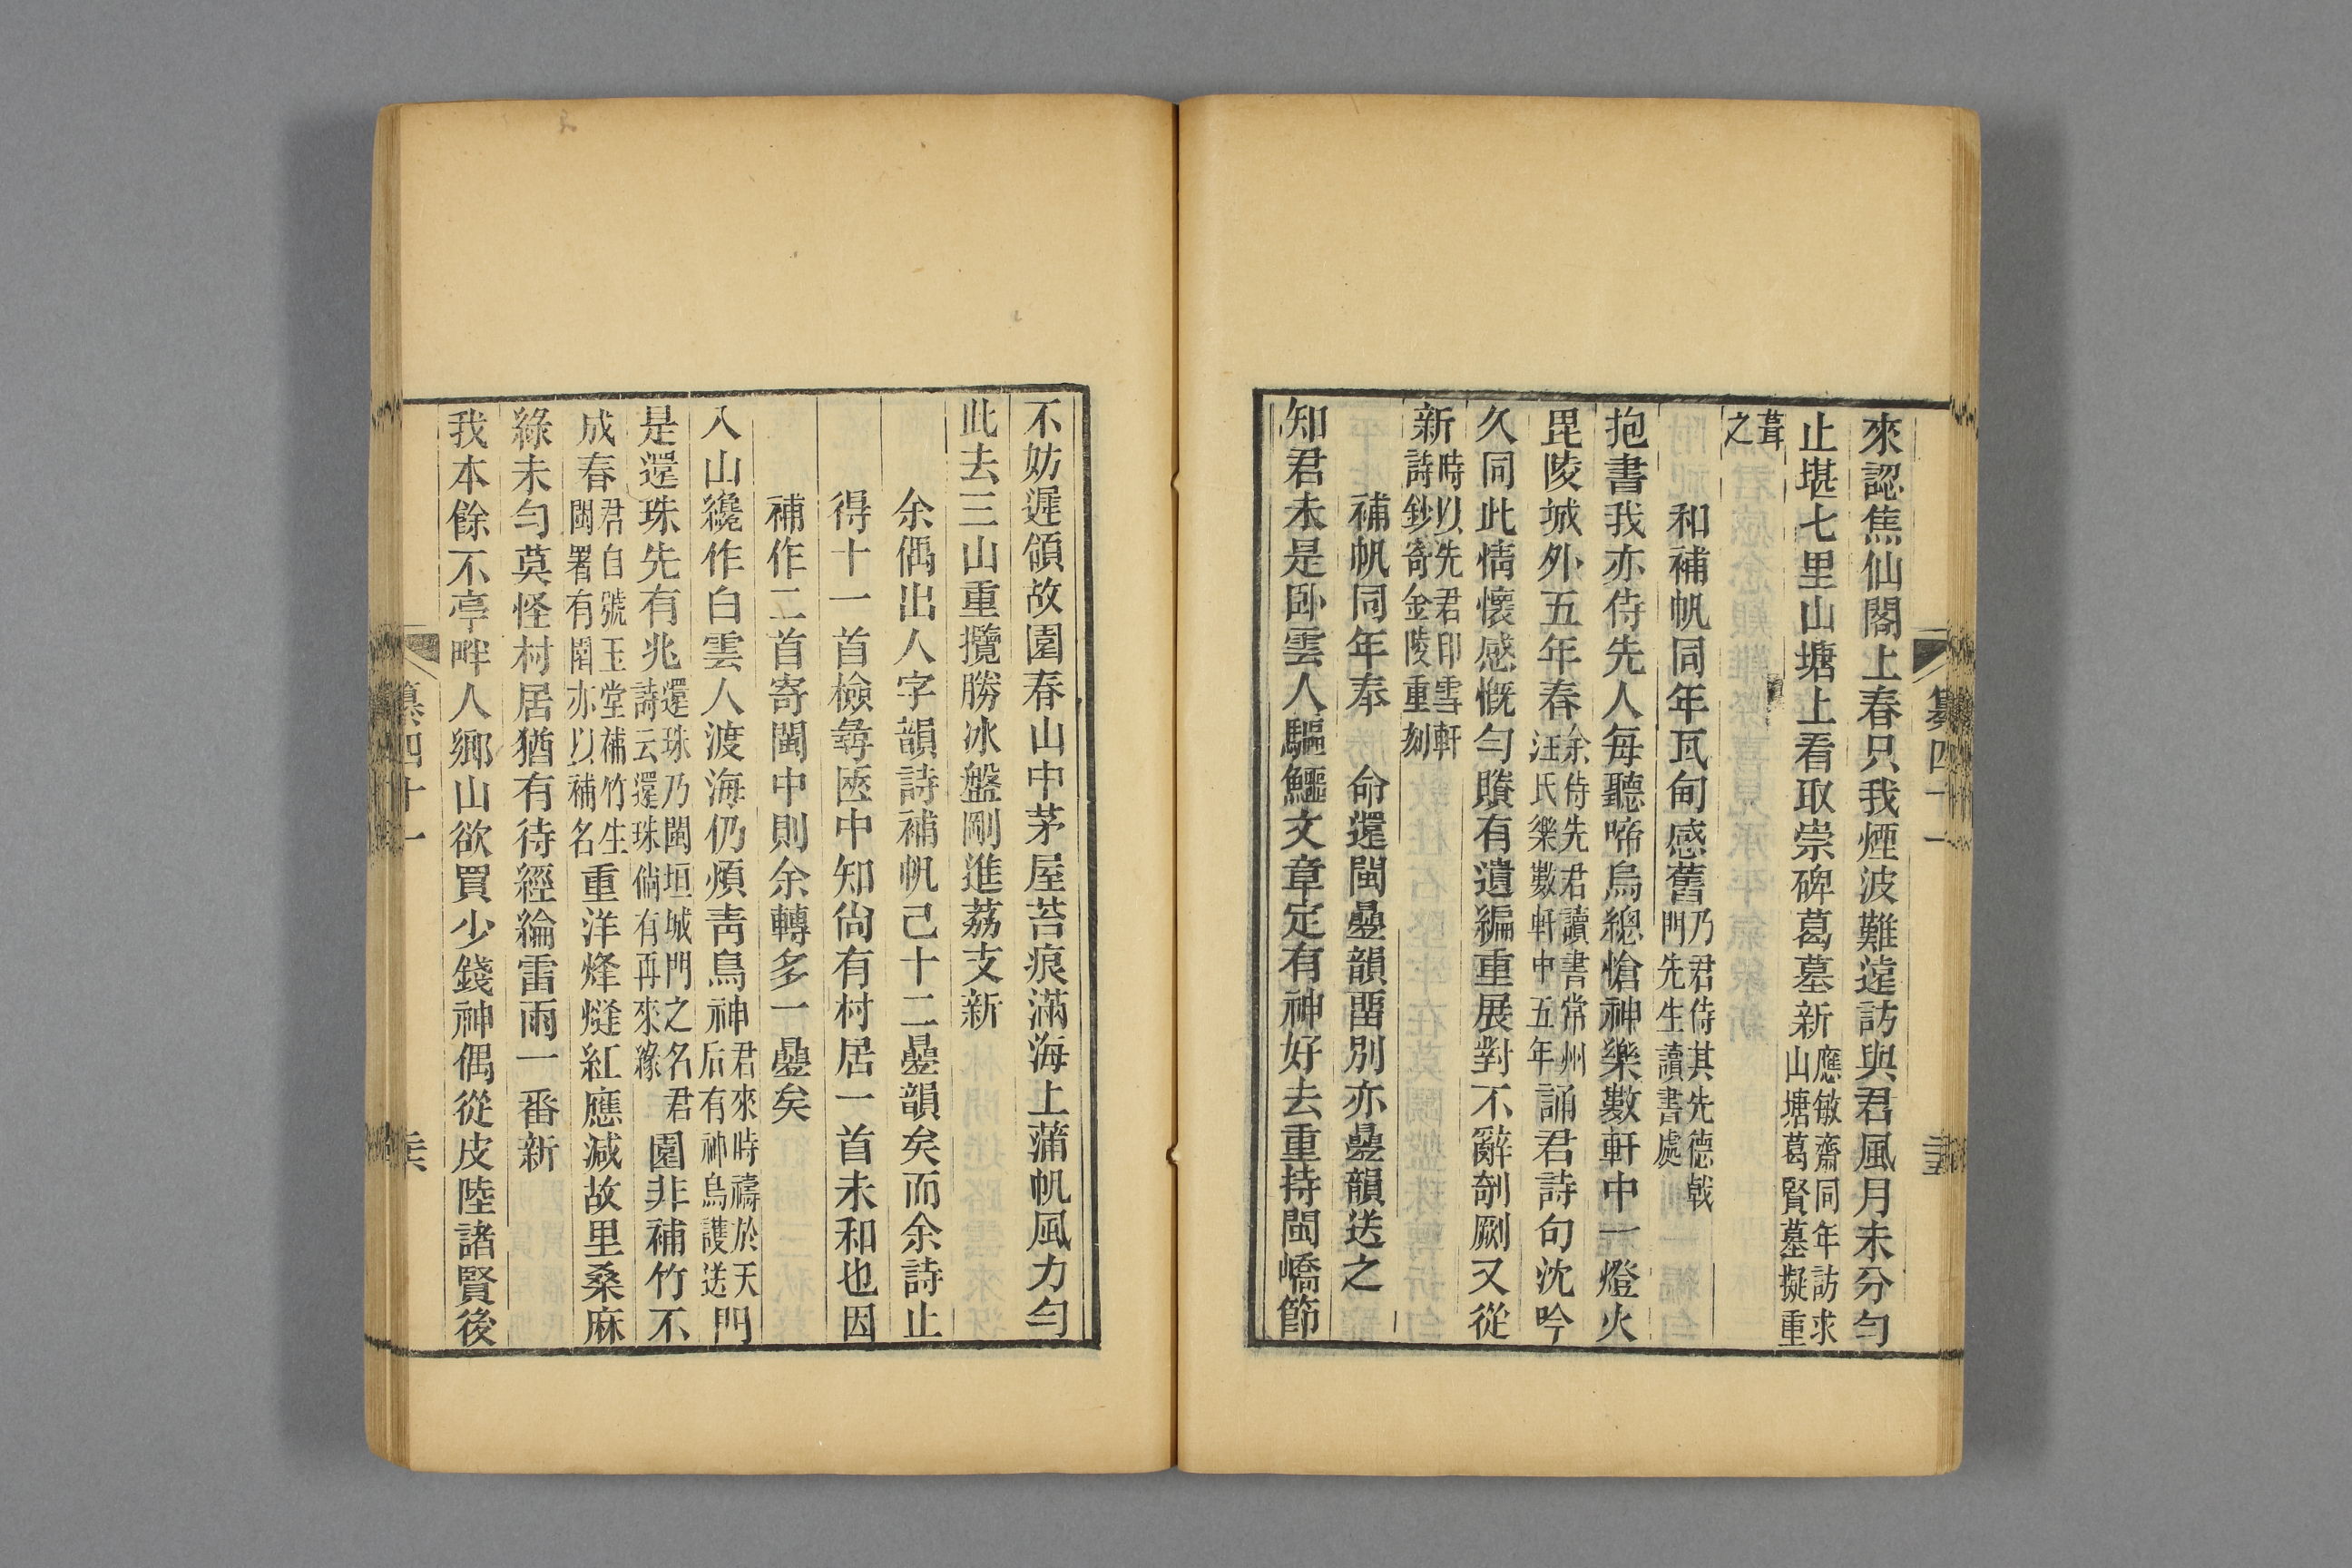 來認焦仙閣上春只我煙波難遠訪與君風月未分勻
止堪七里山塘上看取崇碑葛墓新應敏齋同年訪求山塘葛賢墓擬重
葺之
和補帆同年瓦甸感舊乃君侍其先德戟門先生讀書處
抱書我亦侍先人每聽啼烏總愴神樂數軒中一燈火
毘陵城外五年春余侍先君讀書常州汪氏樂數軒中五年誦君詩句沈吟
久同此情懷感慨勻賸有遺編重展對不辭剞劂又從
新時以先君印雪軒詩鈔寄金陵重刻
補帆同年奉 命還閩疊韻畱別亦疊韻送之
知君未是卧雲人驅鱷文章定有神好去重持閩嶠節
不妨遲領故園春山中茅屋苔痕滿海上蒲帆風力勻
此去三山重攬勝冰盤剛進荔支新
余偶出人字韻詩補帆己十二疊韻矣而余詩止
得十一首檢尋匧中知尙有村居一首未和也因
補作二首寄閩中則余轉多一疊矣
入山纔作白雲人渡海仍煩靑鳥神君來時禱於天后有神鳥護送門
是還珠先有兆還珠乃閩垣城門之名君詩云還珠倘有再來緣園非補竹不
成春君自號玉堂補竹生閩署有園亦以補名重洋烽燧紅應減故里桑麻
綠未勻莫怪村居猶有待經綸雷雨一番新
我本餘不亭畔人鄉山欲買少錢神偶從皮陸諸賢後
纂四十一